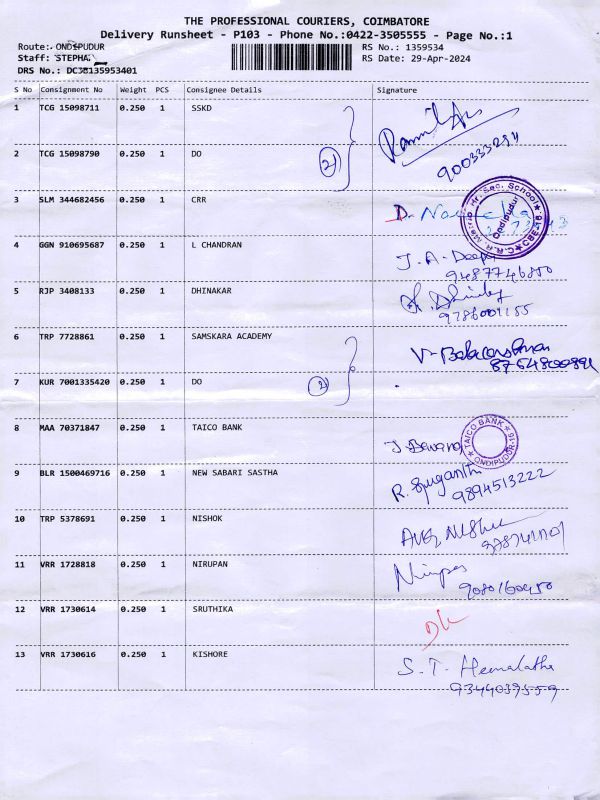 THE PROFESSIONAL COURIERS, COIMBATORE
Delivery Runsheet - P103 - Phone No.:0422-3505555 - Page No.:1
Route: ONDIPUDUR RS No.: 1359534
Staff: STEPHA RS Date: 29-Apr-2024
DRS No.: DC38135953401
S No Consignment No Weight PCS Consignee Details Signature
1 TCG 15098711 0.250 1 SSKD
2 TCG 15098790 0.250 1 DO
(2)
3 SLM 344682456 0.250 1 CRR
C.R.R. Matric Hr. Sec. School Ondipudur CBE-16
4 GGN 910695687 0.250 1 L CHANDRAN J. A. Deepa
9487746850
5 RJP 3408133 0.250 1 DHINAKAR
9786001155
6 TRP 7728861 0.250 1 SAMSKARA ACADEMY
7 KUR 7001335420 0.250 1 DO
(2)
8 MAA 70371847 0.250 1 TAICO BANK
TAICO BANK ONDIPUDUR-16
9 BLR 1500469716 0.250 1 NEW SABARI SASTHA R. Suganthi
9894513222
10 TRP 5378691 0.250 1 NISHOK
11 VRR 1728818 0.250 1 NIRUPAN
9080160450
12 VRR 1730614 0.250 1 SRUTHIKA
13 VRR 1730616 0.250 1 KISHORE S. T. Hemalatha
9344039559